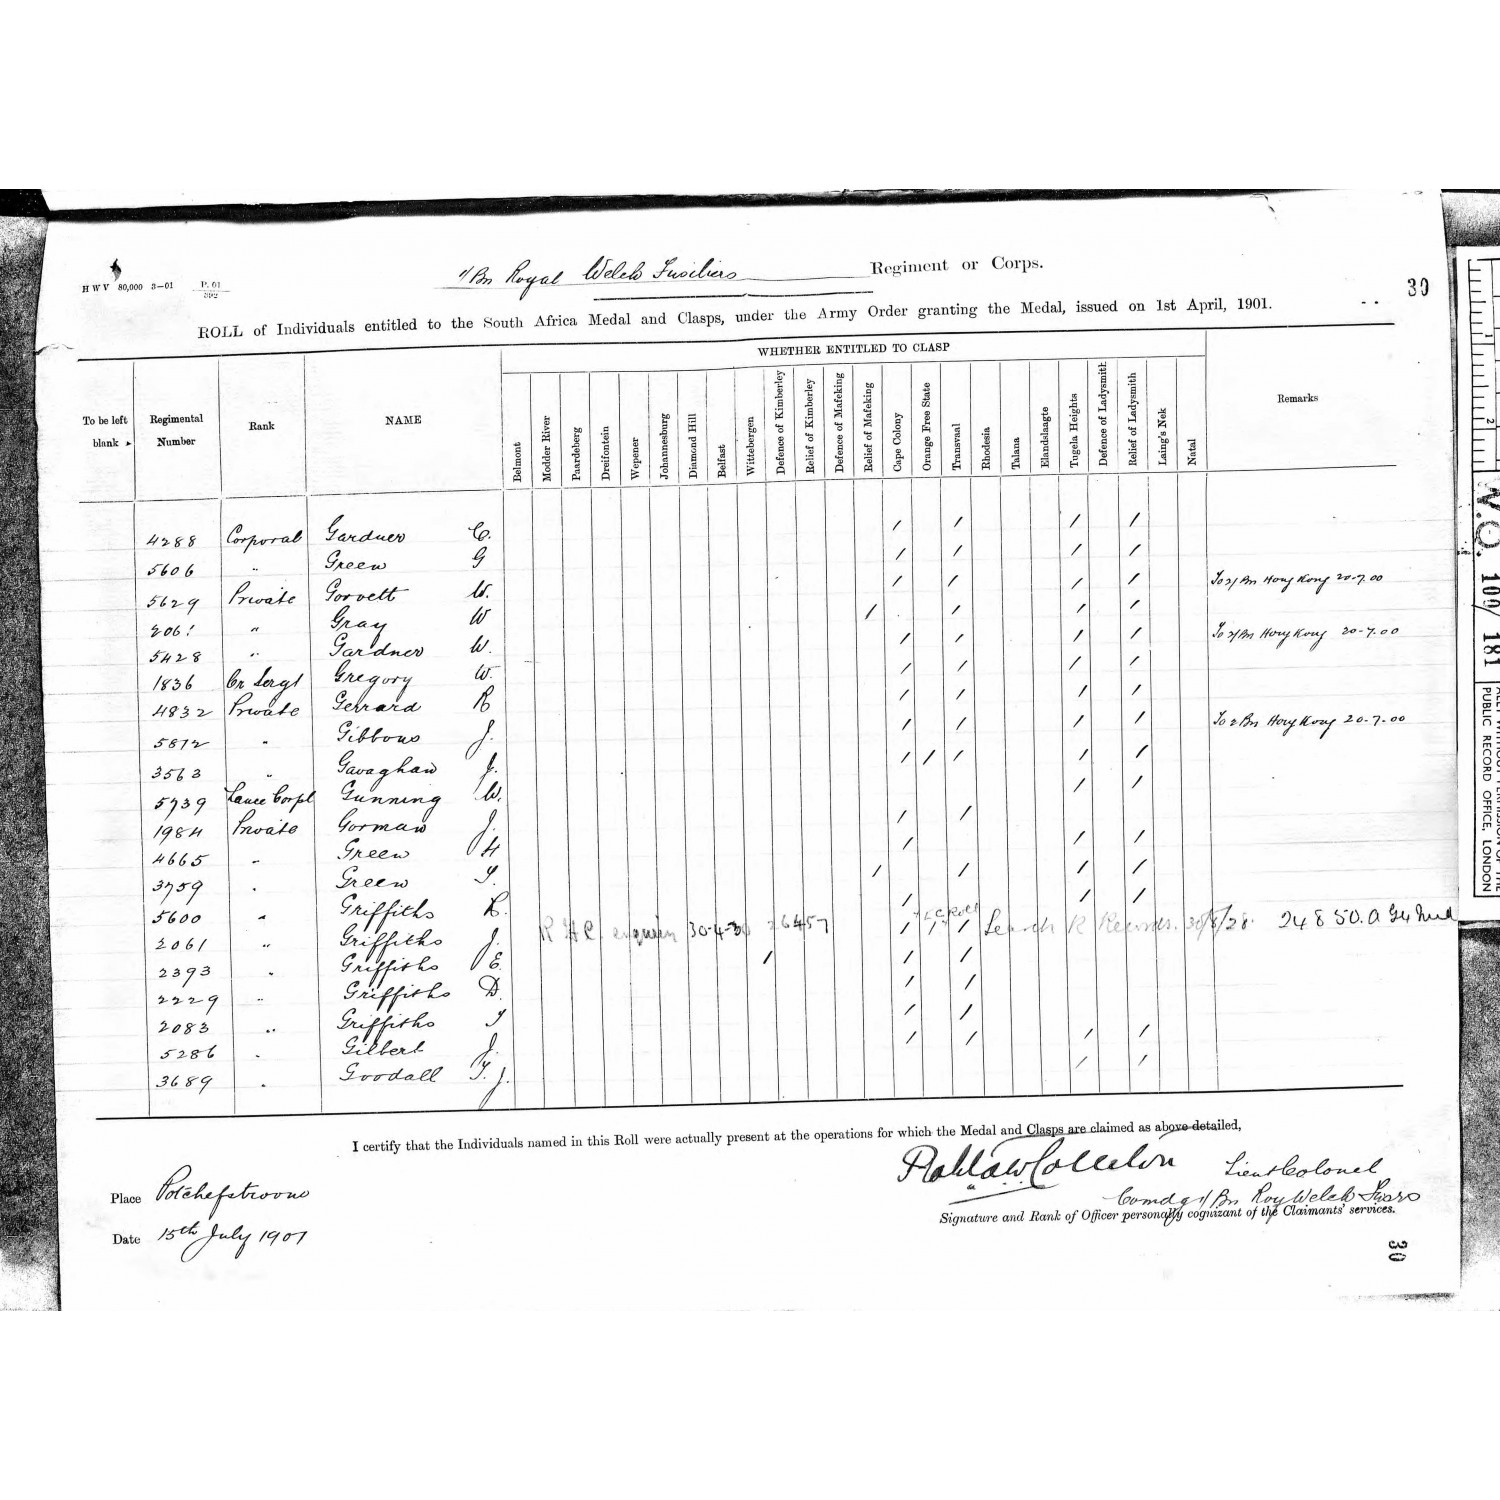 H W V 80,000 3—01 P. 01 / 392
1/Bn Royal Welch Fusiliers Regiment or Corps.
30
ROLL of Individuals entitled to the South Africa Medal and Clasps, under the Army Order granting the Medal, issued on 1st April, 1901.
WHETHER ENTITLED TO CLASP
To be left blank
Regimental Number
Rank
NAME
Belmont
Modder River
Paardeberg
Dreifontein
Wepener
Johannesburg
Diamond Hill
Belfast
Wittebergen
Defence of Kimberley
Relief of Kimberley
Defence of Mafeking
Relief of Mafeking
Cape Colony
Orange Free State
Transvaal
Rhodesia
Talana
Elandslaagte
Tugela Heights
Defence of Ladysmith
Relief of Ladysmith
Laing's Nek
Natal
Remarks
4288 Corporal Gardner C. / / / /
5606 " Green G / / / /
5629 Private Gorvett W. / / / / To 2/Bn Hong Kong 20-7.00
206 " Gray W / / / /
5428 " Gardner W. / / / / To 2/Bn Hong Kong 20-7.00
1836 Cr Sergt Gregory W. / / / /
4832 Private Gerrard R / / / /
5812 " Gibbons J. / / / / To 2 Bn Hong Kong 20-7-00
3563 " Gavaghan J. / / / / /
5739 Lance Corpl Gunning W. / /
1984 Private Gorman J. / /
4665 " Green H / / /
3759 " Green T. / / / /
5600 " Griffiths R. / / /
2061 " Griffiths J. / / / 30-4-30 26457 Search R Records. 30/8/28. 24850.
2393 " Griffiths E. / / /
2229 " Griffiths D. / /
2083 " Griffiths T / /
5286 " Gilbert J. / / / /
3689 " Goodall T. J. / /
I certify that the Individuals named in this Roll were actually present at the operations for which the Medal and Clasps are claimed as above detailed,
Lieut Colonel
Comdg 1/Bn Roy Welch Fusrs
Signature and Rank of Officer personally cognizant of the Claimants' services.
Place Potchefstroom
Date 15th July 1901
30
W.O. 100/181
PUBLIC RECORD OFFICE, LONDON